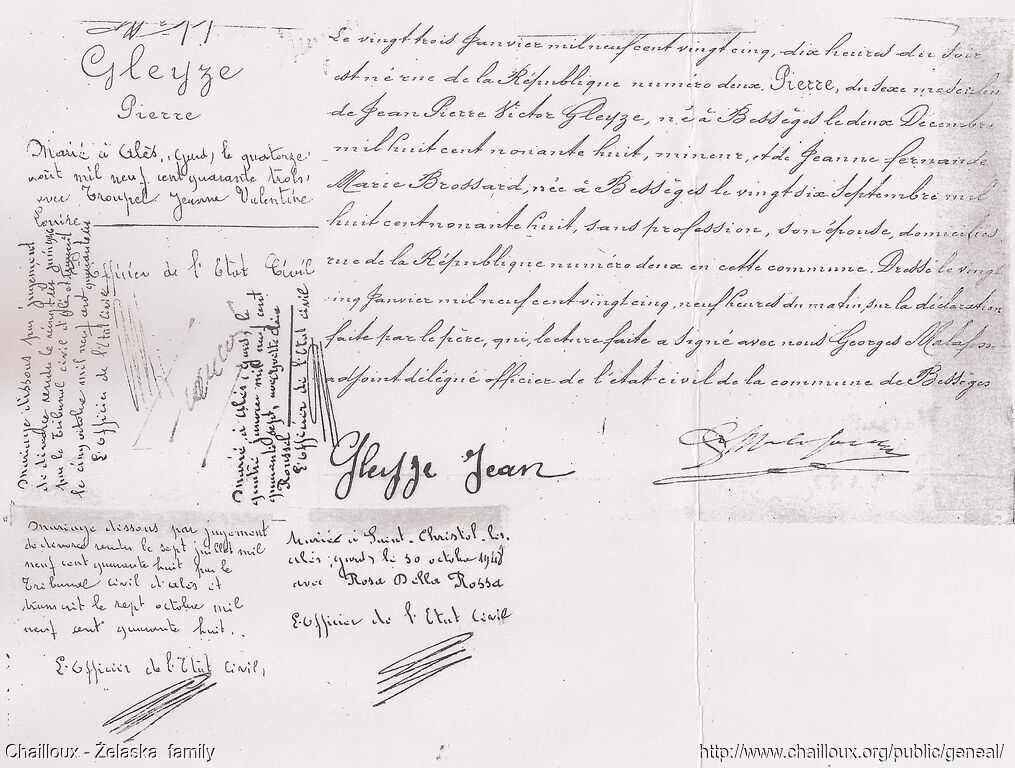 Gleyze
Pierre
Marié à Alès, (gard) le quatorze
août mil neuf cent quarante trois
avec Troupel Jeanne Valentine
L'Officier de l'Etat Civil
Le vingt trois Janvier mil neuf cent vingt cinq, dix heures du soir
est né rue de la République numéro deux, Pierre, du sexe masculin
de Jean Pierre Victor Gleyze, né à Bessèges le deux Décembre
mil huit cent nonante huit, mineur, et de Jeanne fernande
Marie Brossard, née à Bessèges le vingt six Septembre mil
huit cent nonante huit, sans profession, son épouse, domiciliés
rue de la République numéro deux en cette commune. Dressé le vingt
cinq Janvier mil neuf cent vingt cinq, neuf heures du matin, sur la déclaration
faite par le père, qui, lecture faite a signé avec nous Georges Malafosse
adjoint délégué officier de l'état civil de la commune de Bessèges
Gleyze Jean
mariage dissous par jugement
de divorce rendu le vingt
par le Tribunal civil d'Alès et transcrit
le cinq octobre mil neuf cent quarante
L'Officier de l'Etat Civil
Marié à Alès (gard), le
quatre janvier mil neuf cent
quarante sept, avec
Roussel
L'Officier de l'Etat Civil
Mariage dissous par jugement
de divorce rendu le sept juillet mil
neuf cent quarante huit par le
Tribunal civil d'Alès et
transcrit le sept octobre mil
neuf cent quarante huit..
L'Officier de l'Etat Civil,
Mariée à Saint-Christol-les-
Alès, (gard) le 30 octobre 1948
avec Rosa Della Rossa
L'Officier de l'Etat Civil
Chailloux - Żelaska family
http://www.chailloux.org/public/geneal/